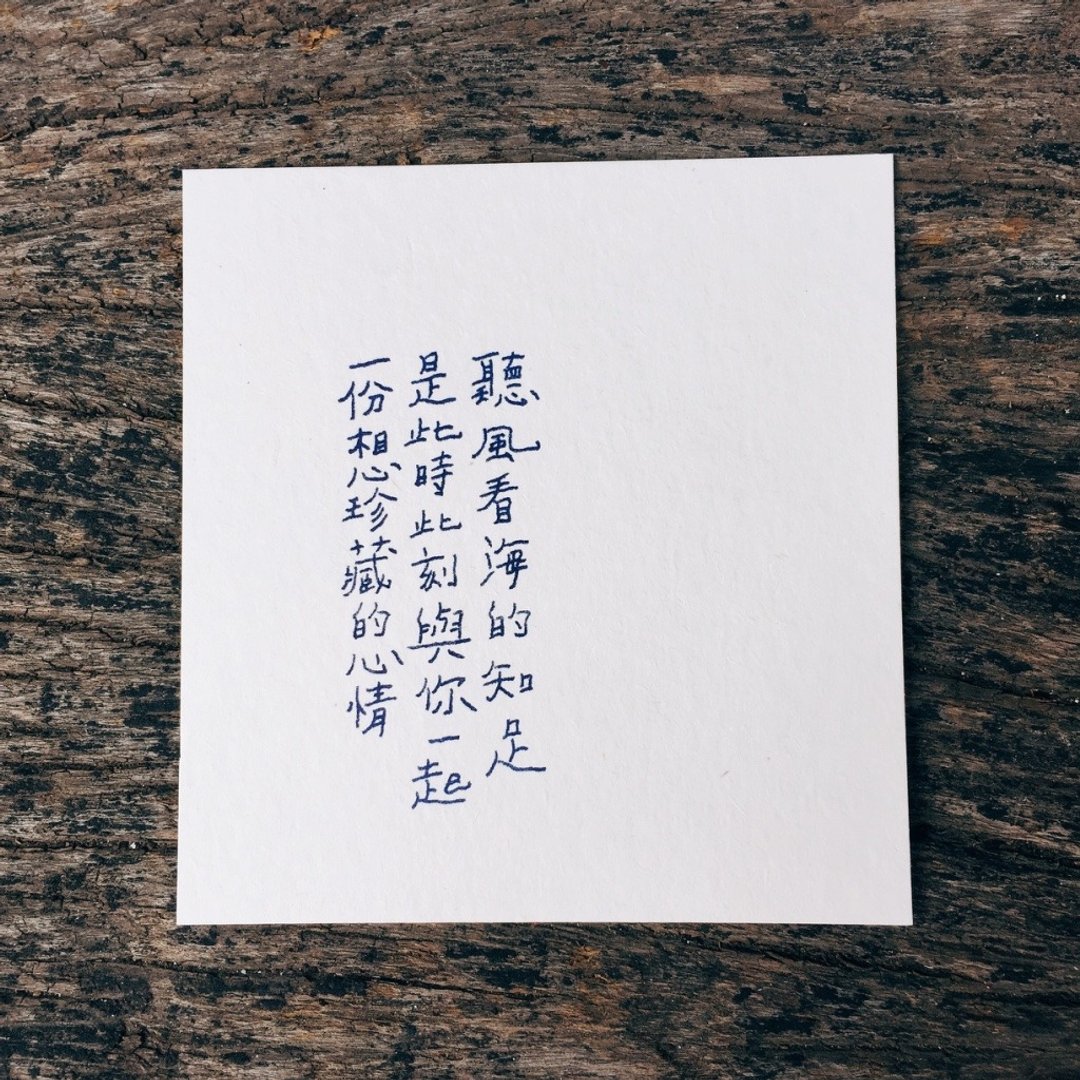 聽風看海的知足
是此時此刻與你一起
一份想珍藏的心情